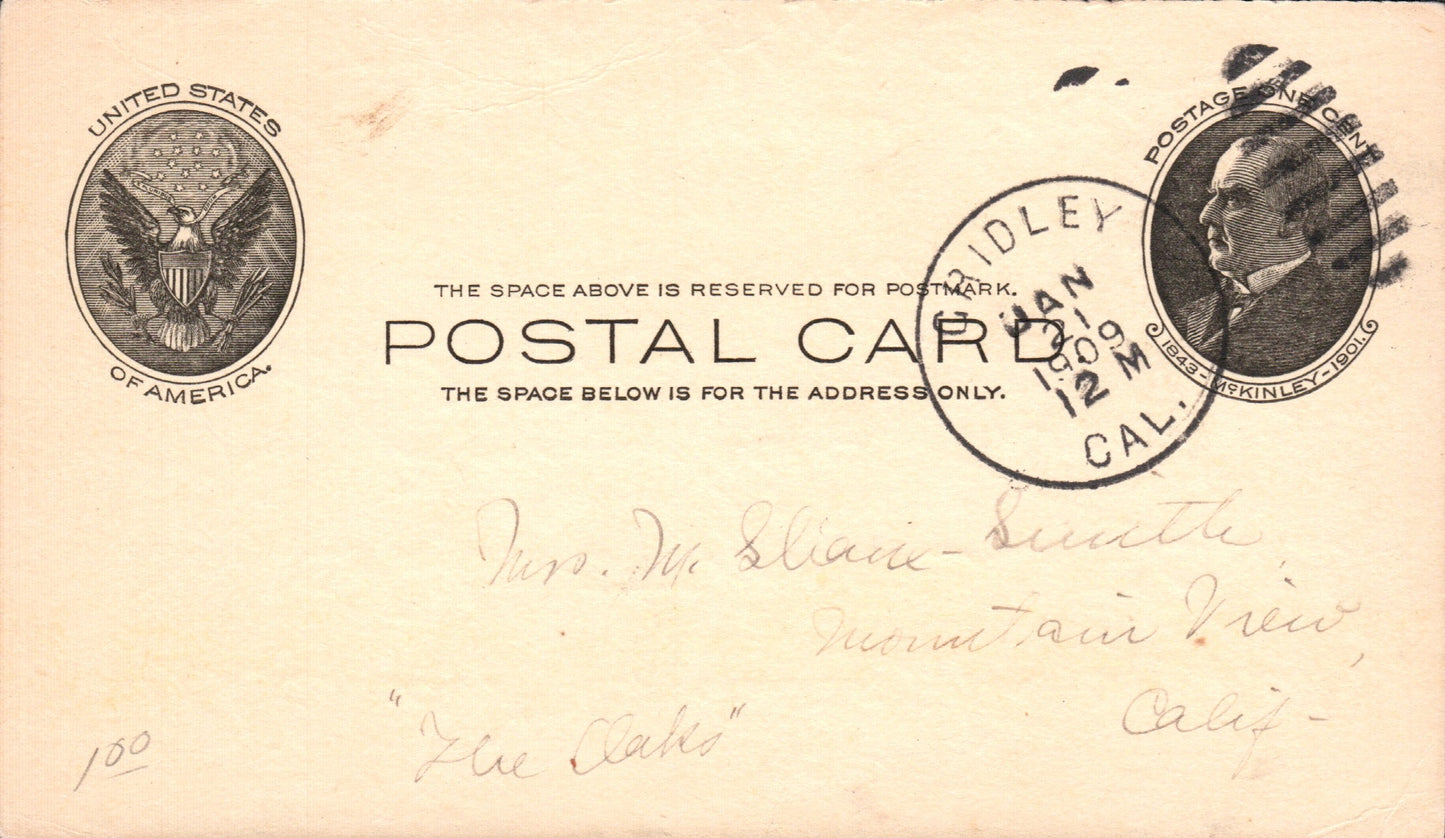 UNITED STATES
OF AMERICA.
POSTAGE ONE CENT
1843-McKINLEY-1901.
THE SPACE ABOVE IS RESERVED FOR POSTMARK.
POSTAL CARD
THE SPACE BELOW IS FOR THE ADDRESS ONLY.
GRIDLEY
JAN
21
1909
12 M
CAL.
Mrs. M. Sloane-Smith,
Mountain View,
Calif-
"The Oaks"
100